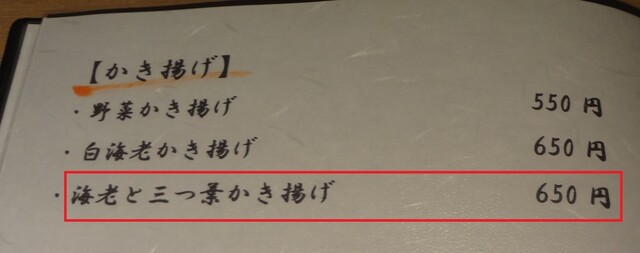 【かき揚げ】
・野菜かき揚げ 550 円
・白海老かき揚げ 650 円
・海老と三つ葉かき揚げ 650 円